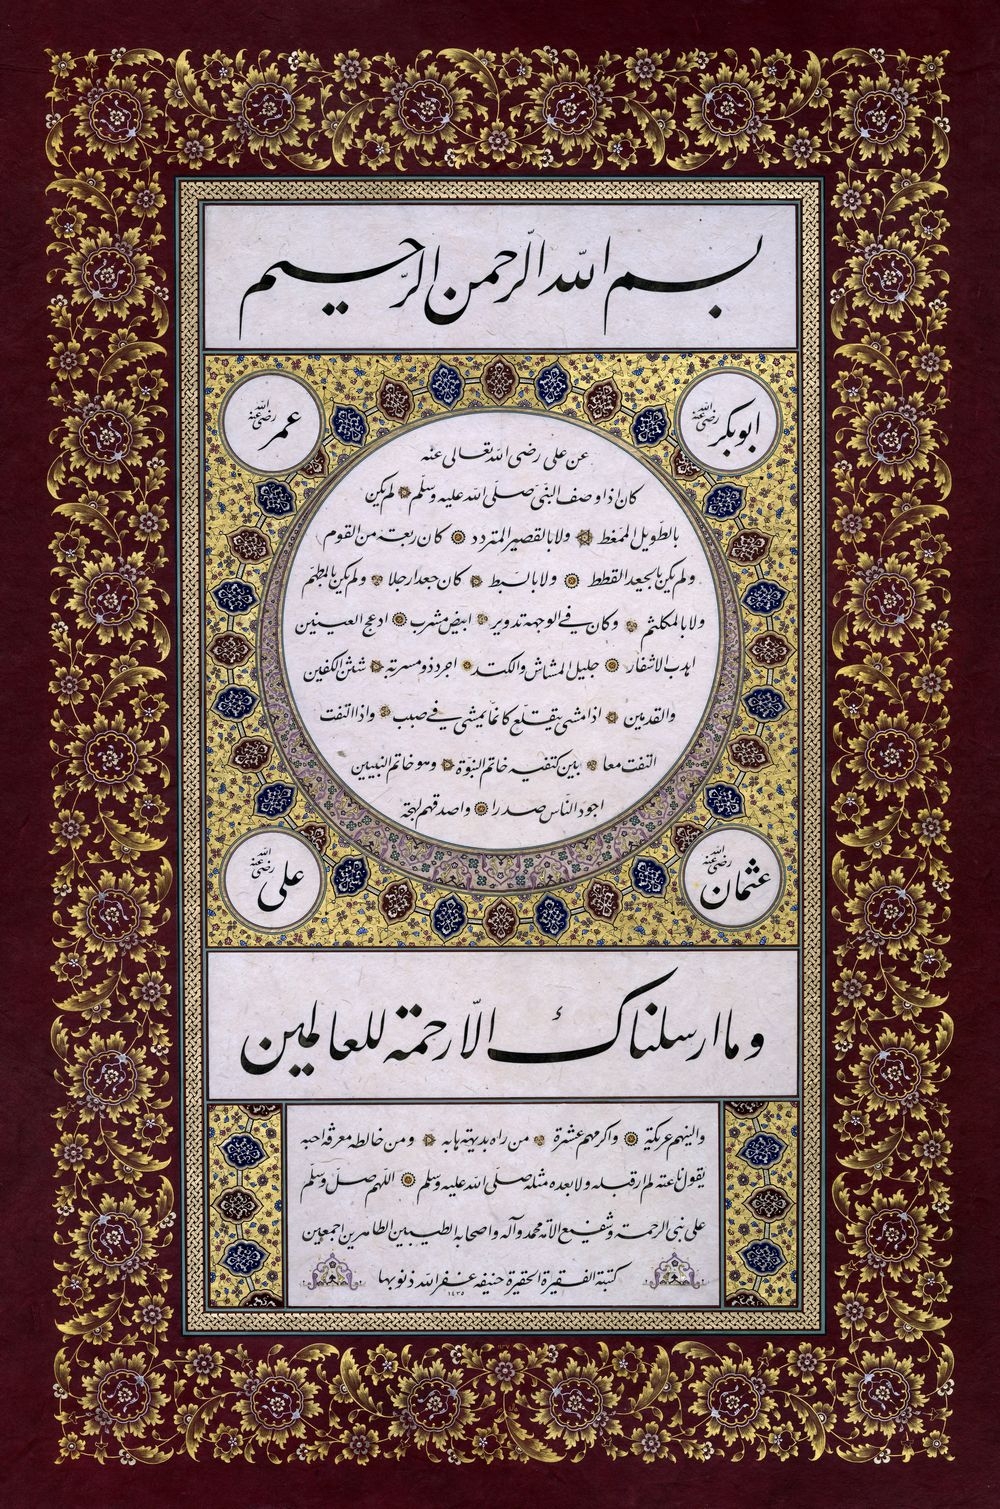 بسم الله الرّحمن الرّحيم
ابوبكر رضى الله عنه
عمر رضى الله عنه
عن على رضى الله تعالى عنه
كان اذا وصف النّبى صلّى الله عليه وسلّم لم يكن
بالطّويل الممّغط ولا بالقصير المتردد كان ربعة من القوم
ولم يكن بالجعد القطط ولا بالسّبط كان جعدا رجلا ولم يكن بالمطهّم
ولا بالمكلثم وكان فى الوجهه تدوير ابيض مشرب ادعج العينين
اهدب الاشفار جليل المشاش والكتد اجرد ذو مسربة شثن الكفين
والقدمين اذا مشى يتقلّع كانّما يمشى فى صبب واذا التفت
التفت معا بين كتفيه خاتم النبوّة وهو خاتم النبيين
اجود النّاس صدرا واصدقهم لهجة
عثمان رضى الله عنه
على رضى الله عنه
وما ارسلناك الّا رحمة للعالمين
والينهم عريكة واكرمهم عشرة من راه بديهة هابه ومن خالطه معرفة احبه
يقول ناعته لم ار قبله ولا بعده مثله صلّى الله عليه وسلّم اللهم صلّ وسلّم
على نبى الرحمة وشفيع الامة محمد وآله واصحابه الطيبين الطاهرين اجمعين
كتبة الفقيرة الحقيرة حنيفه غفر الله ذنوبها
١٤٣٥